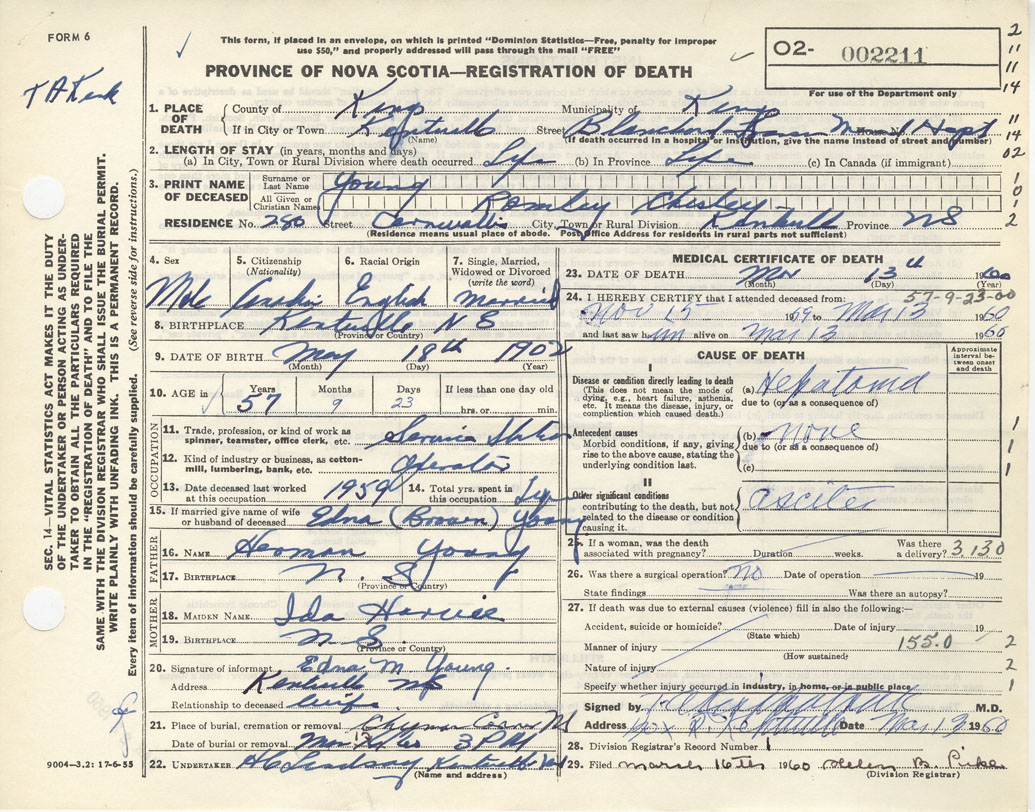 FORM 6
This form, if placed in an envelope, on which is printed "Dominion Statistics—Free, penalty for improper
use $50," and properly addressed will pass through the mail "FREE"
O2- 002211
For use of the Department only
PROVINCE OF NOVA SCOTIA—REGISTRATION OF DEATH
2
11
11
14
11
14
02
1. PLACE OF DEATH
County of Kings Municipality of Kings
If in City or Town Kentville Street Blanchard Fraser M House No. Hospt
(Name) (If death occurred in a hospital or institution, give the name instead of street and number)
2. LENGTH OF STAY (in years, months and days)
(a) In City, Town or Rural Division where death occurred Life (b) In Province Life (c) In Canada (if immigrant)
3. PRINT NAME OF DECEASED
Surname or Last Name Young
All Given or Christian Names Chesley
1
0
1
2
RESIDENCE No. 280 Street Cornwallis City, Town or Rural Division Kentville Province NS
(Residence means usual place of abode. Post Office Address for residents in rural parts not sufficient)
4. Sex
Male
5. Citizenship
(Nationality)
6. Racial Origin
English
7. Single, Married, Widowed or Divorced
(write the word)
Married
8. BIRTHPLACE Kentville N S
(Province or Country)
9. DATE OF BIRTH May 18th 1902
(Month) (Day) (Year)
10. AGE in
Years 57
Months 9
Days 23
If less than one day old
hrs. or min.
OCCUPATION
11. Trade, profession, or kind of work as
spinner, teamster, office clerk, etc. Service Station
12. Kind of industry or business, as cotton-
mill, lumbering, bank, etc. Operator
13. Date deceased last worked
at this occupation 1959
14. Total yrs. spent in
this occupation Life
15. If married give name of wife
or husband of deceased Edna (Brown) Young
FATHER
16. NAME Herman Young
17. BIRTHPLACE N. S
(Province or Country)
MOTHER
18. MAIDEN NAME Ida Harvie
19. BIRTHPLACE N S.
(Province or Country)
20. Signature of informant Edna M. Young.
Address Kentville NS
Relationship to deceased wife
21. Place of burial, cremation or removal
Date of burial or removal 3 PM
22. UNDERTAKER Lindsay Kentville
(Name and address)
MEDICAL CERTIFICATE OF DEATH
23. DATE OF DEATH Mar 13th 1960
(Month) (Day) (Year)
57-9-23-00
24. I HEREBY CERTIFY that I attended deceased from:
Nov 15 1959 to Mar 13 1960
and last saw him alive on Mar 13 1960
CAUSE OF DEATH
Approximate interval between onset and death
I
Disease or condition directly leading to death
(This does not mean the mode of
dying, e.g., heart failure, asthenia,
etc. It means the disease, injury, or
complication which caused death.)
(a) Hepatoma
due to (or as a consequence of)
Antecedent causes
Morbid conditions, if any, giving
rise to the above cause, stating the
underlying condition last.
(b) None
due to (or as a consequence of)
(c)
1
1
1
II
Other significant conditions
contributing to the death, but not
related to the disease or condition
causing it.
ascites
25. If a woman, was the death
associated with pregnancy? Duration weeks. Was there
a delivery? 3,130
26. Was there a surgical operation? no Date of operation 19
State findings Was there an autopsy?
27. If death was due to external causes (violence) fill in also the following:—
Accident, suicide or homicide? Date of injury 19
(State which)
Manner of injury 155.0 2
(How sustained)
Nature of injury 2
Specify whether injury occurred in industry, in home, or in public place 1
Signed by M.D.
Address Box Kentville Date Mar 13 1960
28. Division Registrar's Record Number 1
29. Filed March 16th 1960 Helen B.
(Division Registrar)
SEC. 14—VITAL STATISTICS ACT MAKES IT THE DUTY
OF THE UNDERTAKER OR PERSON ACTING AS UNDER-
TAKER TO OBTAIN ALL THE PARTICULARS REQUIRED
IN THE "REGISTRATION OF DEATH" AND TO FILE THE
SAME WITH THE DIVISION REGISTRAR WHO SHALL ISSUE THE BURIAL PERMIT.
WRITE PLAINLY WITH UNFADING INK. THIS IS A PERMANENT RECORD.
Every item of information should be carefully supplied. (See reverse side for instructions.)
9004—3.2: 17-6-55